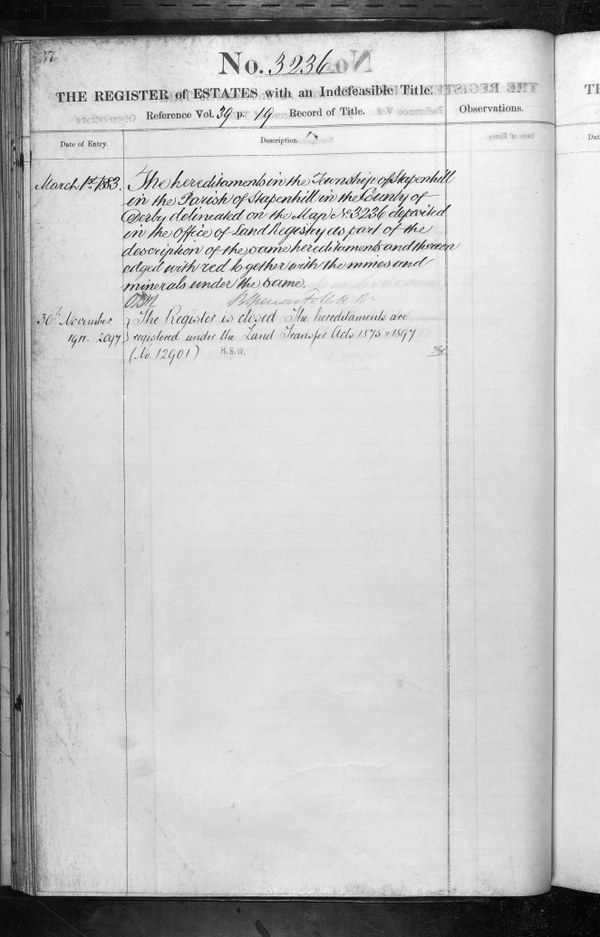 No. 3236
THE REGISTER of ESTATES with an Indefeasible Title.
Reference Vol. 39 p. 19 Record of Title.
Observations.
Date of Entry.
Description
March 1st 1883.
The hereditaments in the Township of Stapenhill
in the Parish of Stapenhill in the County of
Derby delineated on the Map No. 3236 deposited
in the Office of Land Registry as part of the
description of the same hereditaments and thereon
edged with red together with the mines and
minerals under the same.
30th November
1911. 2097
The Register is closed The hereditaments are
registered under the Land Transfer Acts 1875 & 1897
(No. 12901) H.S.W.